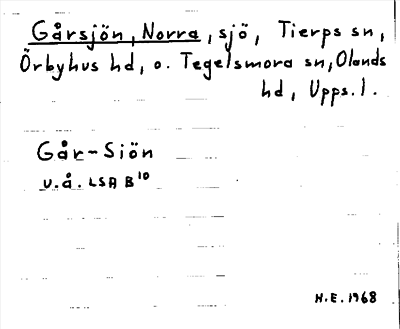 Gårsjön, Norra, sjö, Tierps sn,
Örbyhus hd, o. Tegelsmora sn, Olands
hd, Upps. l.
Går-Siön
u.å. LSA B¹⁰
H.E. 1968